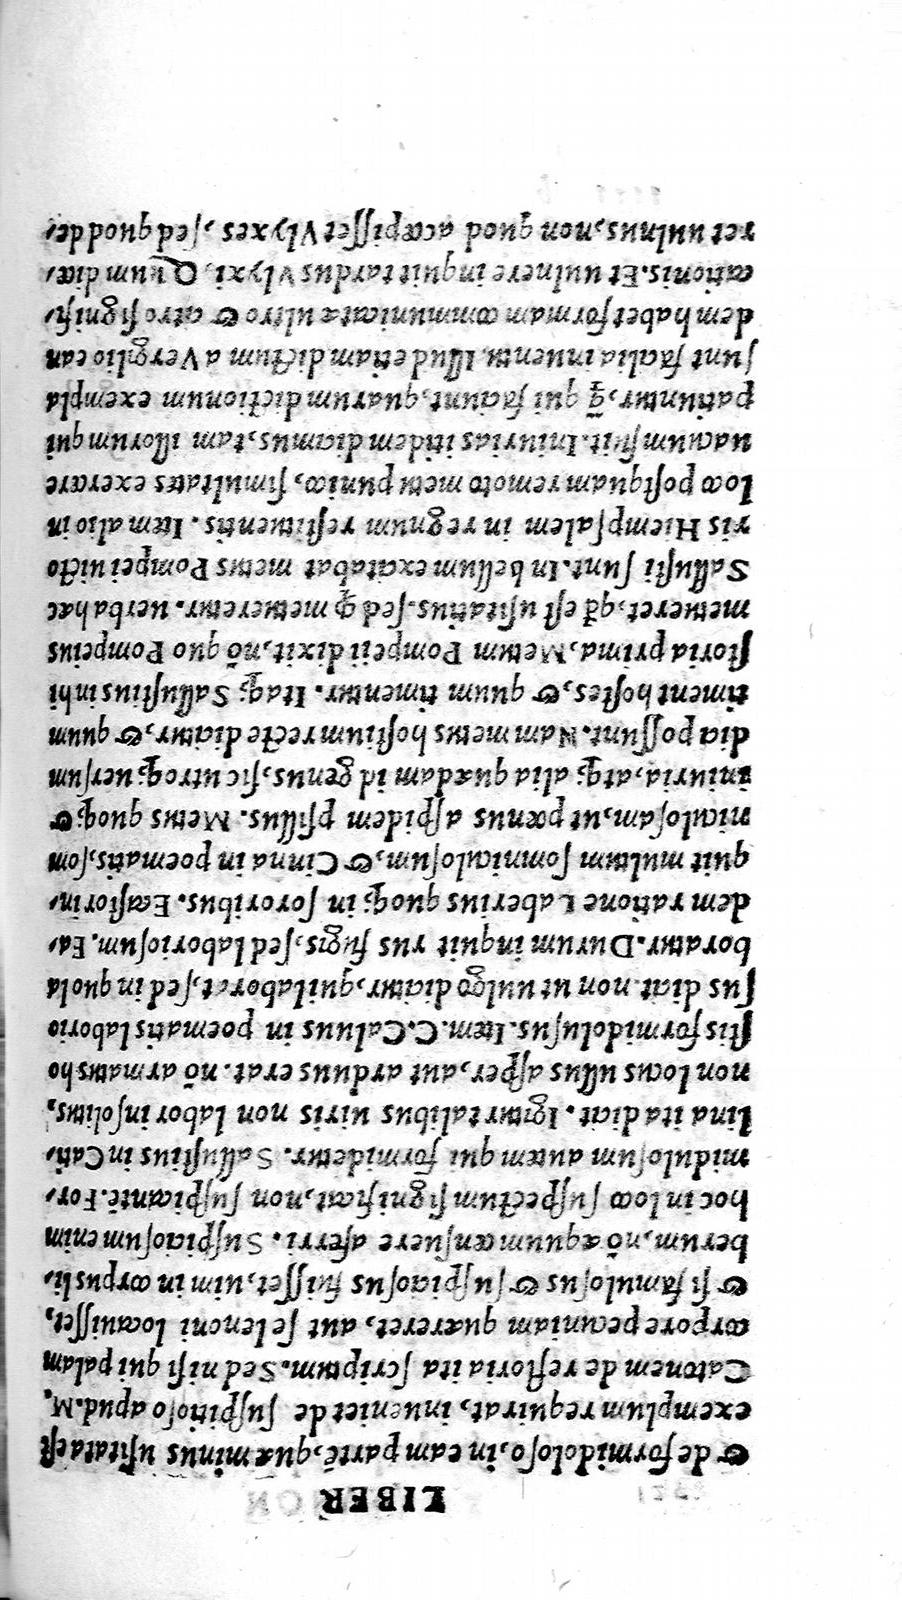 LIBER
& de formidoloso, in eam partē, quæ minus usitata est
exemplum requirat, inueniet de suspitioso apud. M.
Catonem de re floria ita scriptum. Sed nisi qui palam
corpore pecuniam quæreret, aut se lenoni locauisset,
& si famulosus & suspiciosus fuisset, uim in corpus li-
berum, nō æquum censuere afferri. Suspiciosum enim
hoc in loco suspectum significat, non suspicantē. For-
midulosum autem qui formidetur. Sallustius in Cati-
lina ita dicit. Igitur talibus uiris non labor insolitus,
non locus ullus asper, aut arduus erat. nō armatus ho
stis formidolusus. Item. C. Caluus in poematis laborio
sus dicit. non ut uulgo dicitur, qui laborat, sed in quo la
boratur. Durum inquit rus fugis, sed laboriosum. Ea-
dem ratione Laberius quoq; in sororibus. Ecastorin-
quit multum somniculosum, & Cinna in poematis, som
niculosam, ut pœnus aspidem psillus. Metus quoq; &
iniuria, atq; alia quædam id genus, sic utroq; uersum
dia possunt. Nam metus hostium recte dicitur, & quum
timent hostes, & quum timentur. Itaq; Sallustius in hi
storia prima, Metum Pompeii dixit, nō quo Pompeius
metueret, qđ est usitatius. sed ꝙ metueretur. uerba hæc
Sallusti sunt. In bellum excitabat metus Pompei uicto
ris Hiempsalem in regnum restituentis. Item alio in
loco postquam remoto metu punico, simultates exercere
uacuum fuit. Iniurias itidem dicimus, tam illorum qui
patiuntur, q̄ qui faciunt, quarum dictionum exempla
sunt facilia inuentu. Illud etiam dictum a Vergilio ean
dem habet formam communicatæ ultro & citro signifi-
cationis. Et uulnere inquit tardus Vlyxi, Quum dice-
ret uulnus, non quod accepisset Vlyxes, sed quod de-